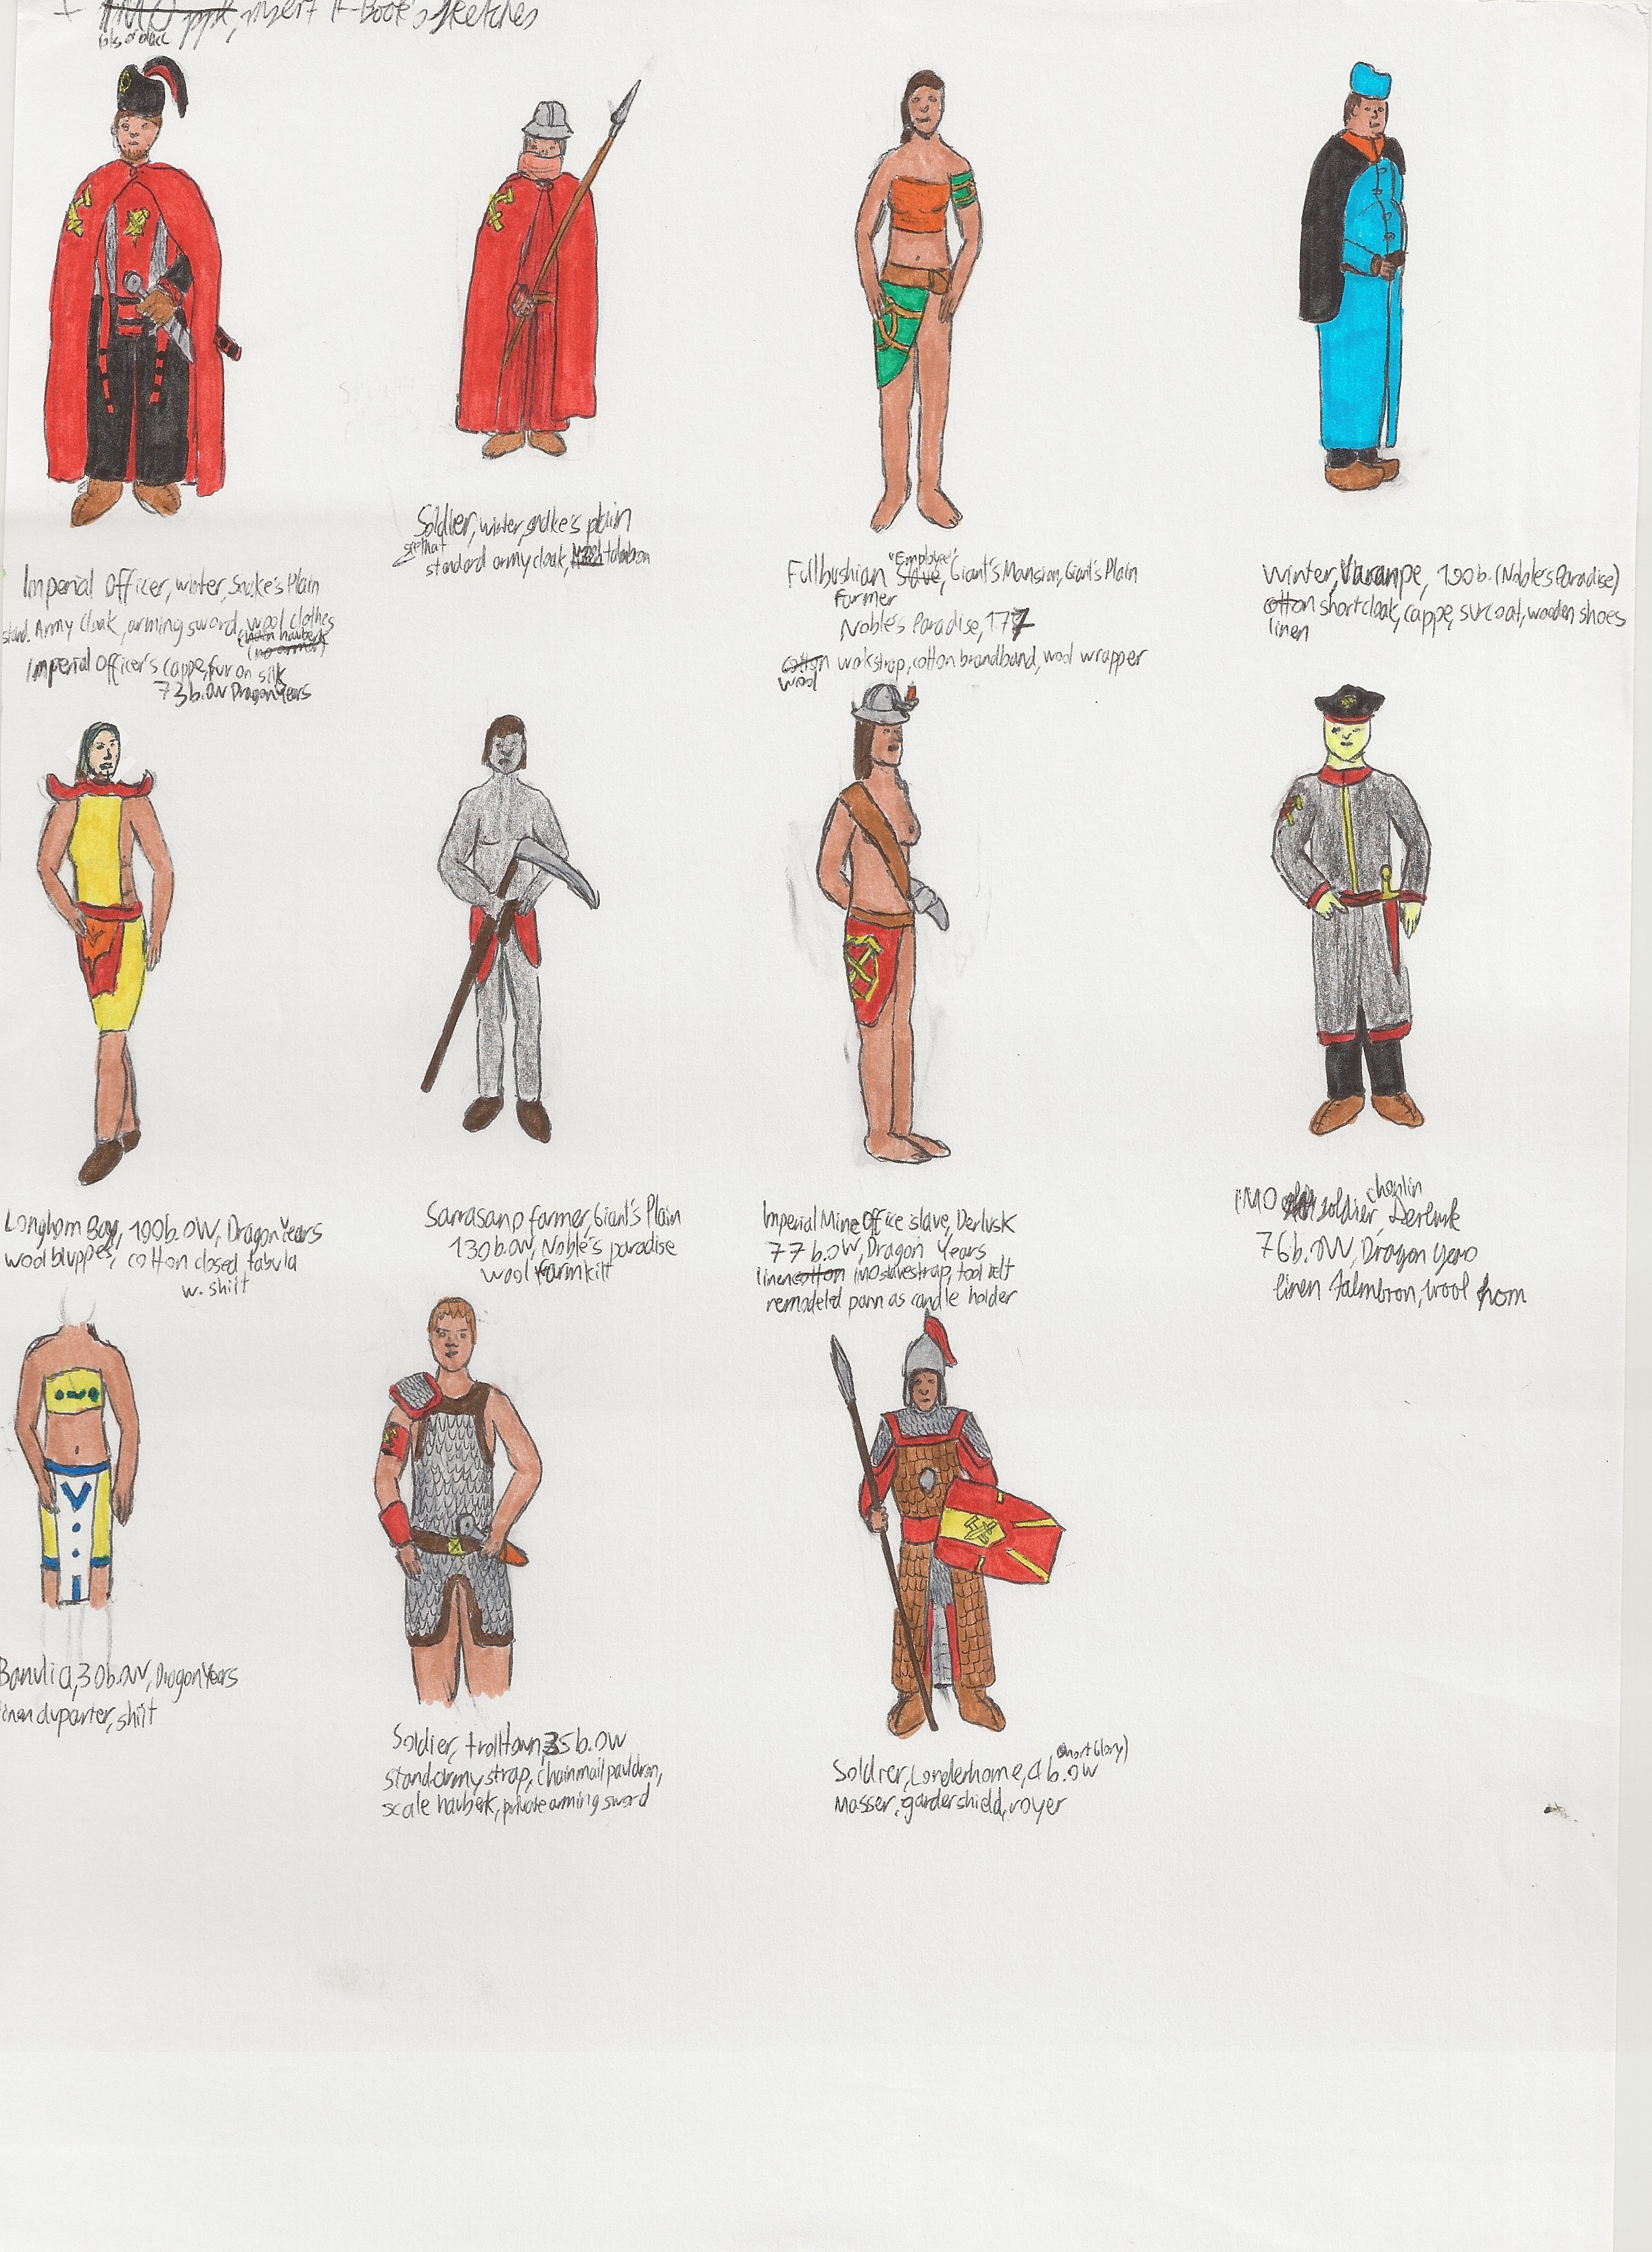 insert K-Book's sketches
Imperial Officer, winter, Snake's Plain
stand. Army Cloak, arming sword, wool clothes
(chain hauberk)
(no armor)
Imperial Officer's cappe, fur on silk
73 b.OW Dragon Years
Soldier, winter, snake's plain
standard army cloak, talmbron
"Employee"
Fullbushian Slave, Giant's Mansion, Giant's Plain
farmer
Noble's Paradise, 177
cotton workstrap, cotton brandband, wool wrapper
wool
Winter, Varanpe, 190b. (Noble's Paradise)
cotton short cloak, cappe, surcoat, wooden shoes
linen
Longhorn Bay, 100b.OW, Dragon Years
wool bluppes, cotton closed tabula
w. shilt
Sarrasano farmer, Giant's Plain
130b.OW, Noble's paradise
wool farmkilt
Imperial Mine Office slave, Derlusk
77 b.OW, Dragon Years
linen cotton IMO slavestrap, tool belt
remodeled pann as candle holder
chaplin
IMO soldier, Derlusk
76b.OW, Dragon years
linen Talmbron, wool hom
Banulia, 30b.OW, Dragon Years
linen duparter, shilt
Soldier, trolltown, 35 b.OW
stand. army strap, chainmail pauldron,
scale hauberk, private arming sword
(Short Glory)
Soldier, Londerhome, 4 b.OW
Masser, gardershield, royer